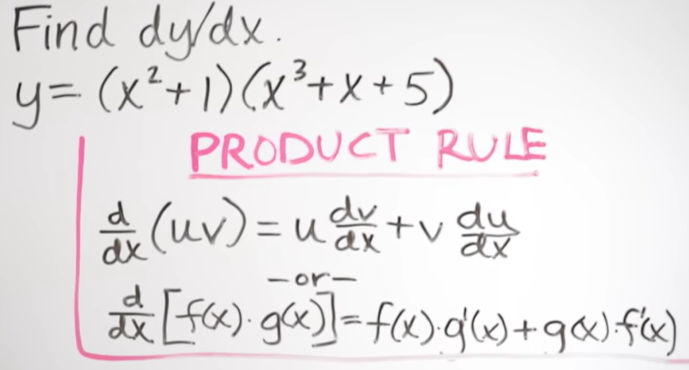 Find dy/dx.
y= (x²+1)(x³+x+5)
PRODUCT RULE
d/dx (uv) = u dv/dx + v du/dx
-or-
d/dx [f(x)·g(x)]=f(x)·g'(x)+g(x)·f'(x)